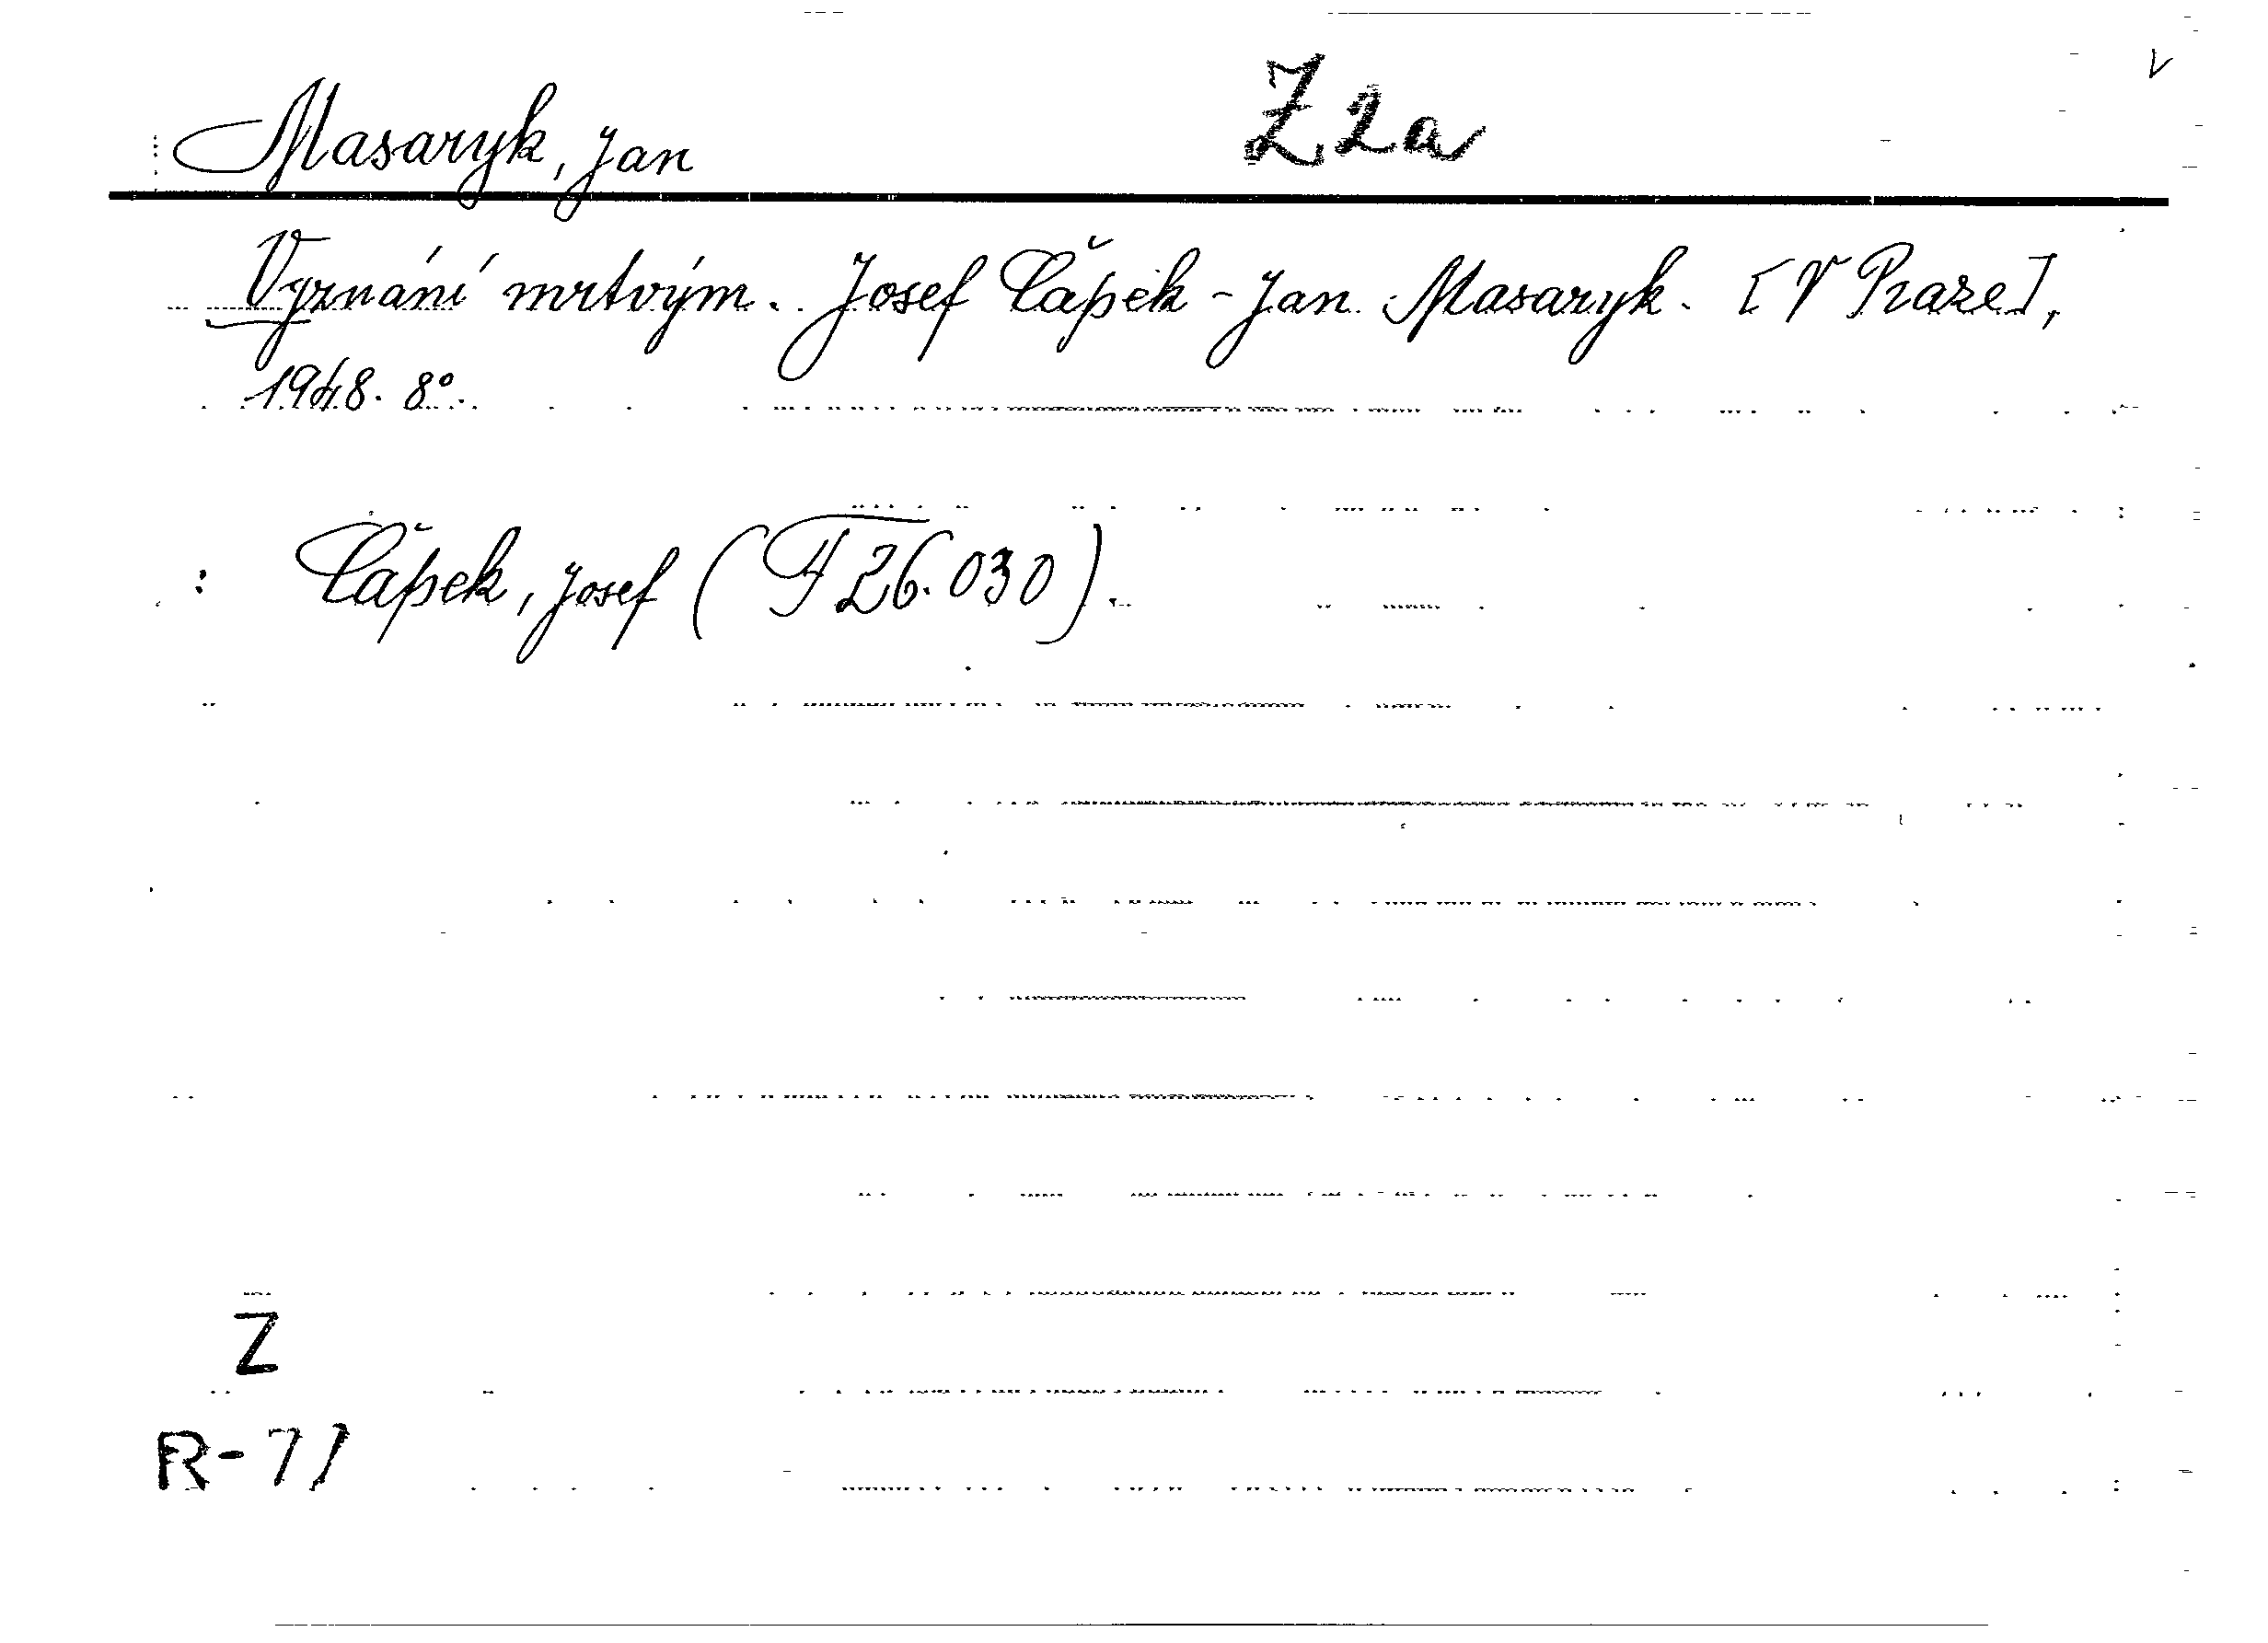 Masaryk, Jan Z 2a V
Vyznání mrtvým. Josef Čapek - Jan Masaryk. [V Praze],
1948. 8°.
: Čapek, Josef (F 26.030).
Z
R-71